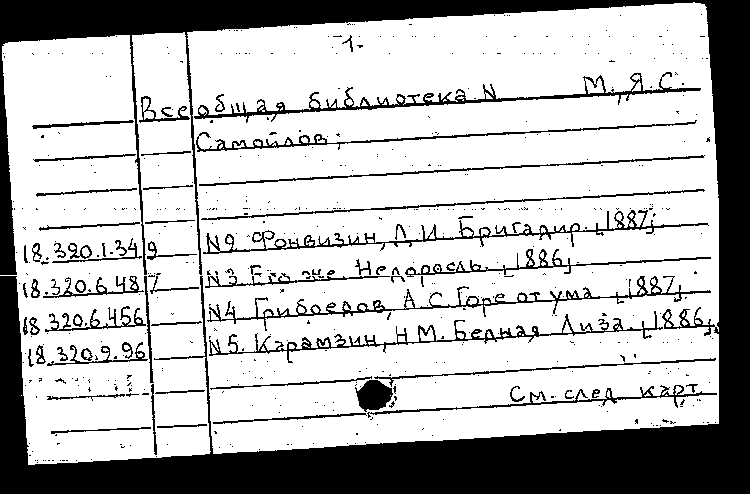 1.
Всеобщая библиотека N М., Я.С.
Самойлов;
18.320.1.34 9 N2 Фонвизин, Д.И. Бригадир. [1887]
18.320.6.48 7 N3 Его же. Недоросль. [1886]
18.320.6.456 N4 Грибоедов, А.С. Горе от ума [1887]
18.320.9.96 N5. Карамзин, Н.М. Бедная Лиза. [1886]
См. след. карт.